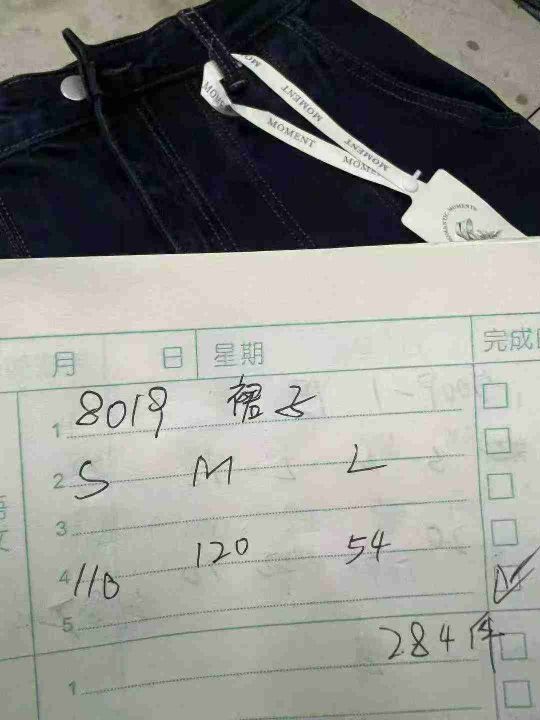 MOMENT
MOMENT
MOMENT
ROMANTIC MOMENTS
月 日 星期 完成
1 8019 裙子
2 S M L
3
4 110 120 54
5
284件
1